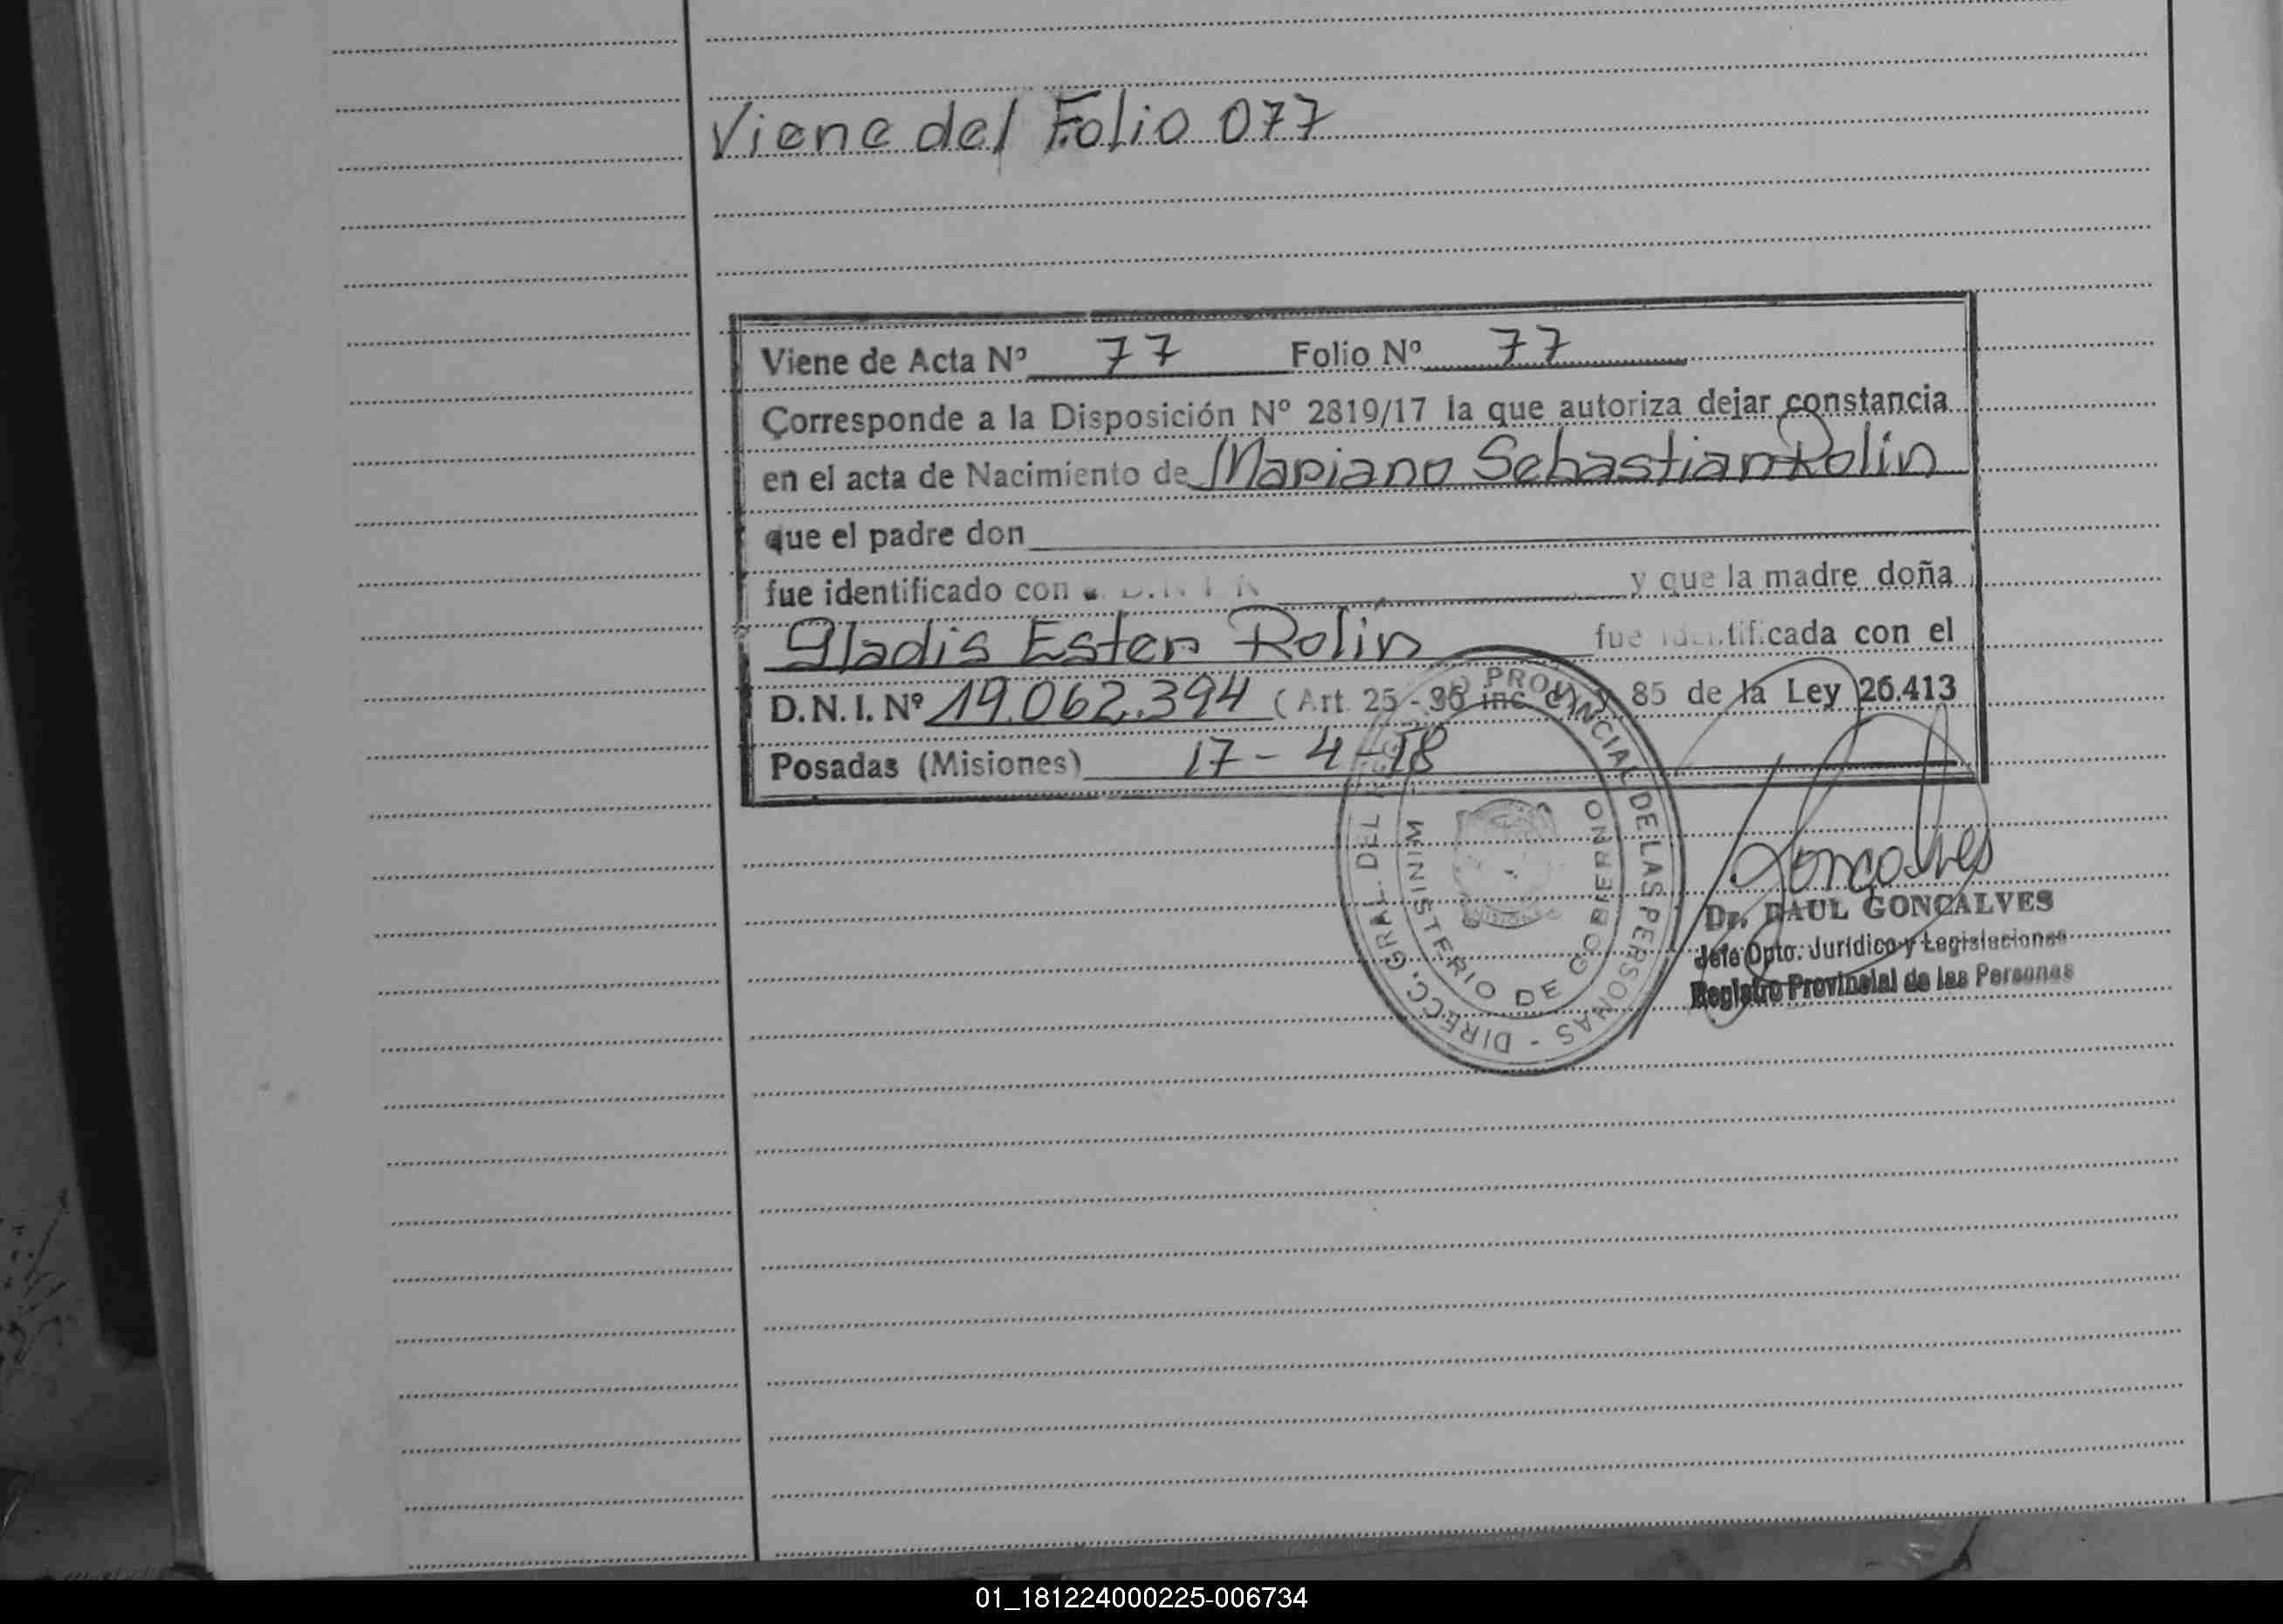 Viene del Folio 077
Viene de Acta Nº 77 Folio Nº 77
Corresponde a la Disposición Nº 2819/17 la que autoriza dejar constancia
en el acta de Nacimiento de Mariano Sebastian Rolin
que el padre don
fue identificado con D.N.I. N y que la madre doña
Gladis Ester Rolín fue identificada con el
D.N.I. Nº 19.062.394 (Art. 25 - 36 inc c) y 85 de la Ley 26.413
Posadas (Misiones) 17-4-18
DIRECC. GRAL. DEL PROVINCIAL DE LAS PERSONAS -
MINISTERIO DE GOBIERNO
Goncalves
Dr. RAUL GONCALVES
Jefe Dpto. Jurídico y Legislaciones
Registro Provincial de las Personas
01_181224000225-006734